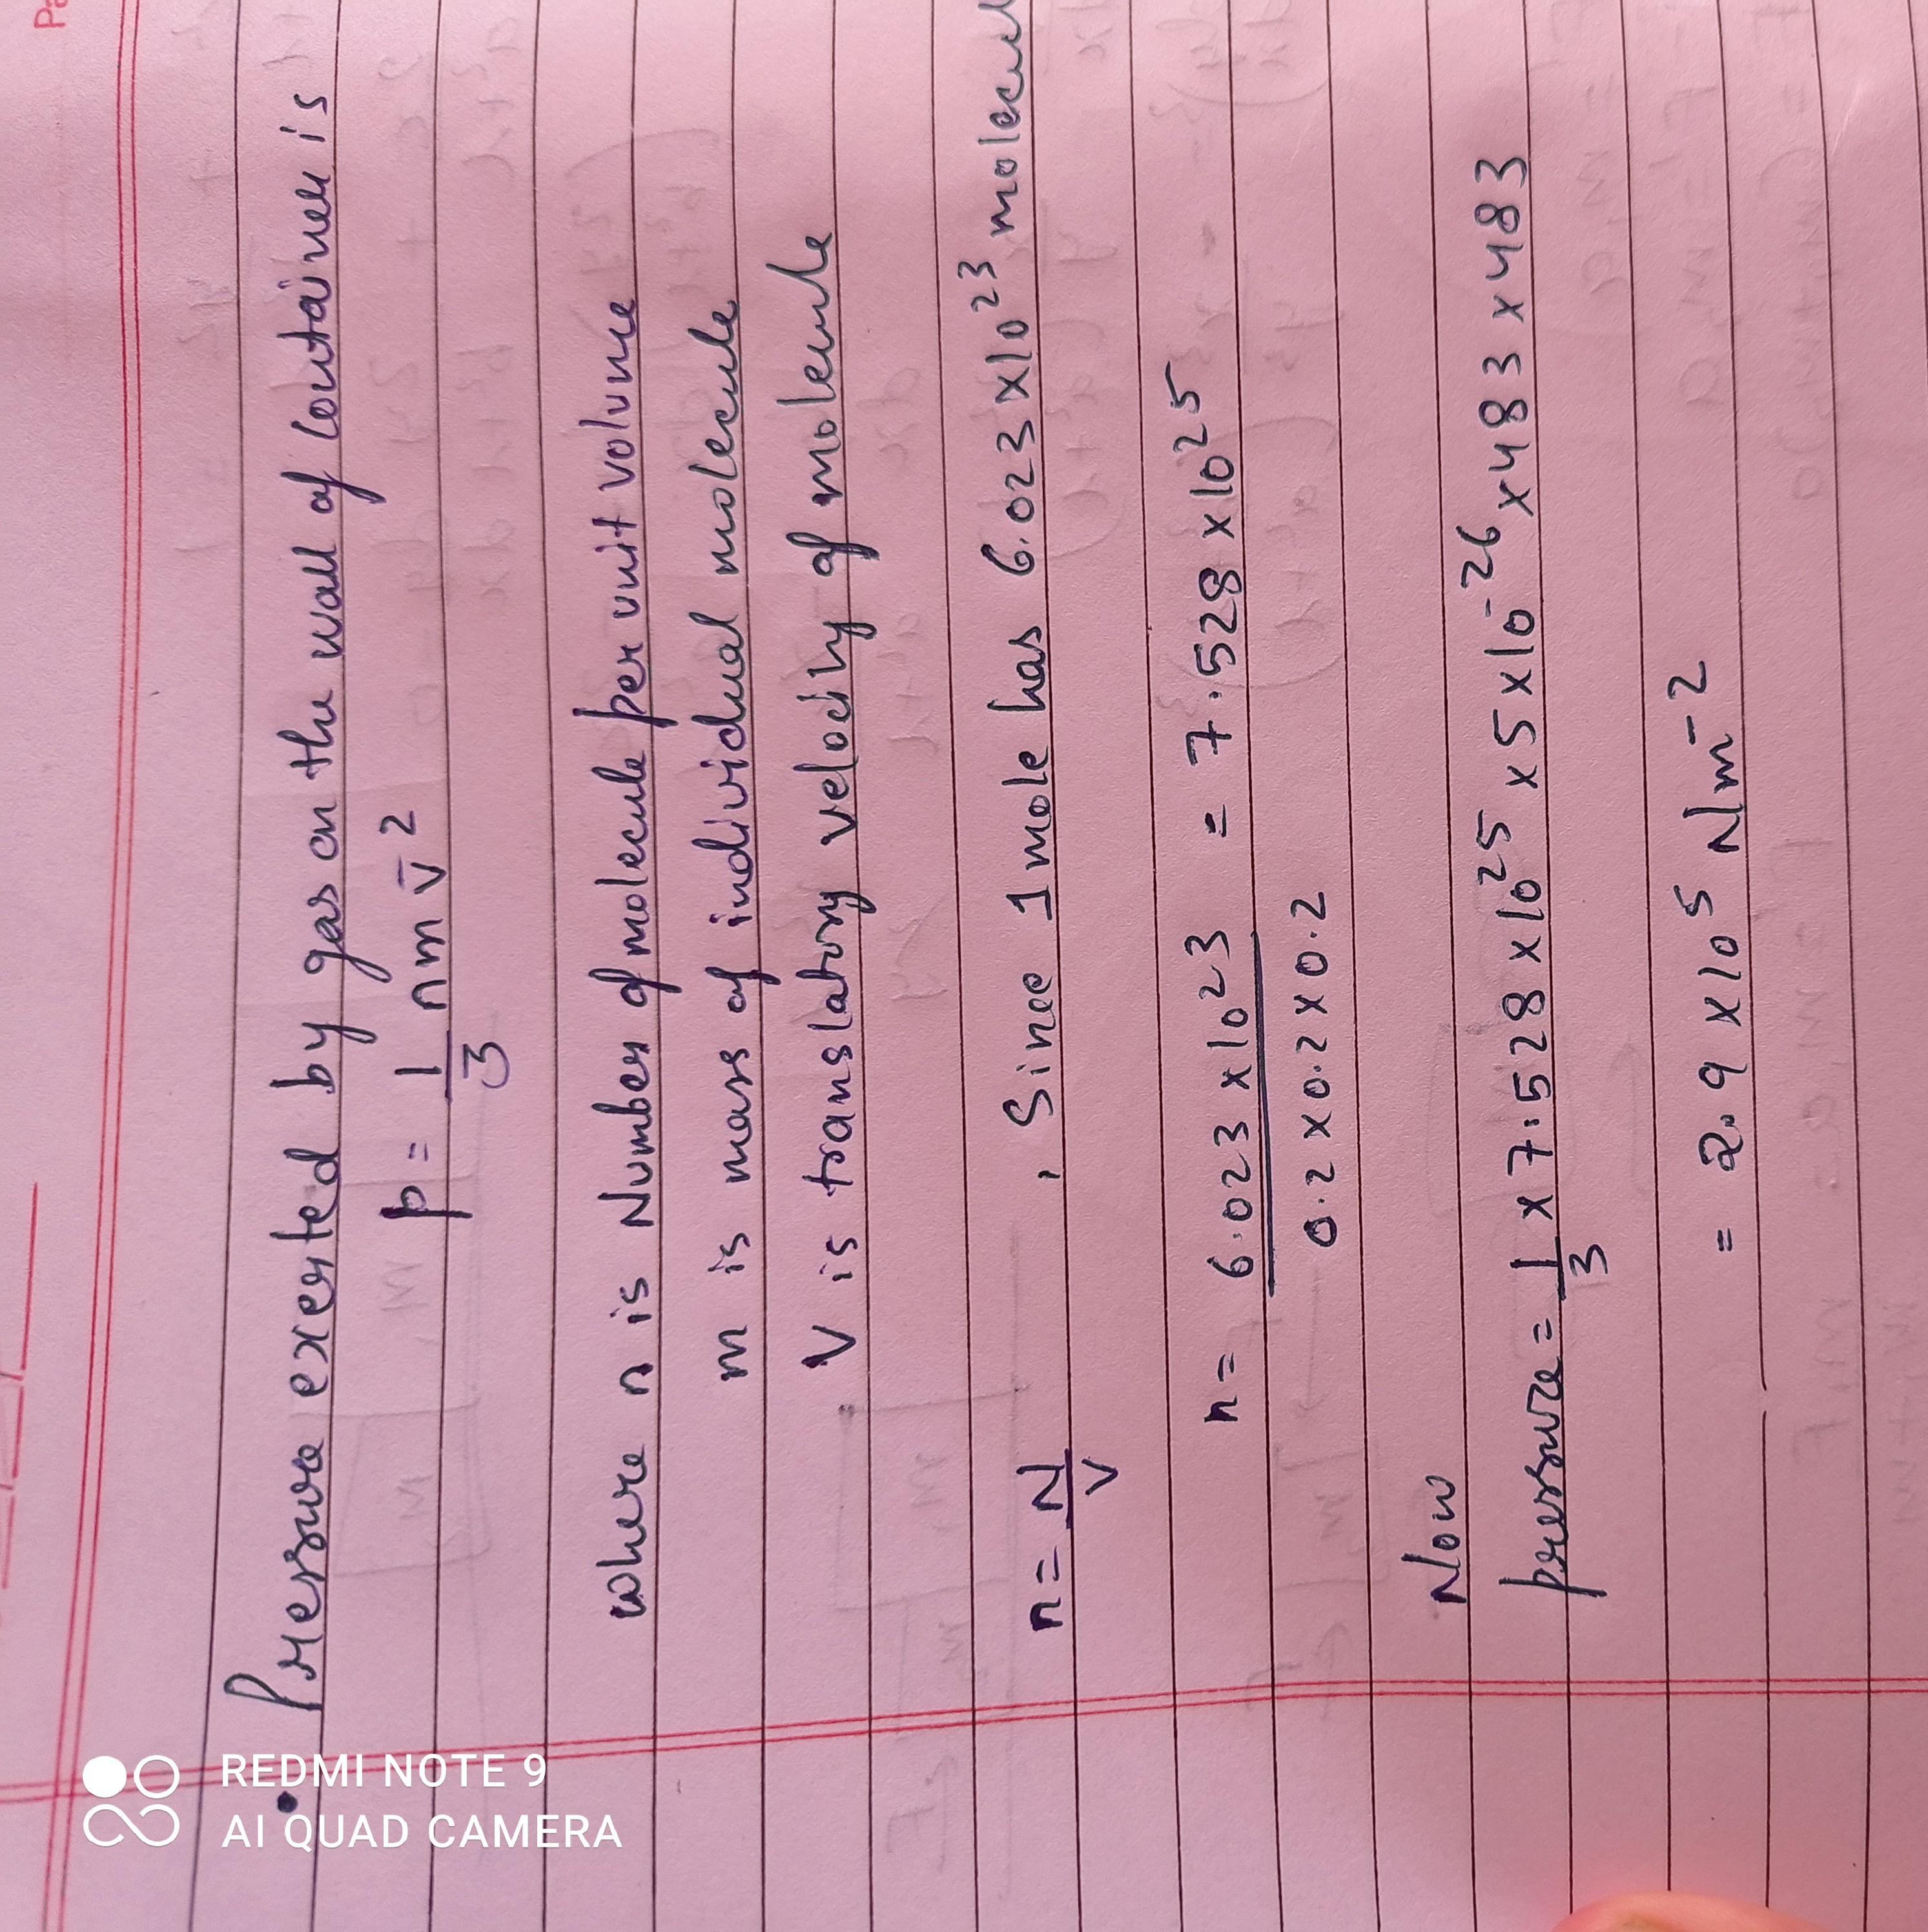 Pressure exerted by gas on the wall of Container is
p = 1/3 nm v̄²
where n is Number of molecule per unit volume
m is mass of individual molecule
V is translatory velocity of molecule
n = N/V , Since 1 mole has 6.023 × 10²³ molecul
n = 6.023 × 10²³ / 0.2 × 0.2 × 0.2 = 7.528 × 10²⁵
Now
pressure = 1/3 × 7.528 × 10²⁵ × 5 × 10⁻²⁶ × 483 × 483
= 2.9 × 10⁵ Nm⁻²
REDMI NOTE 9
AI QUAD CAMERA